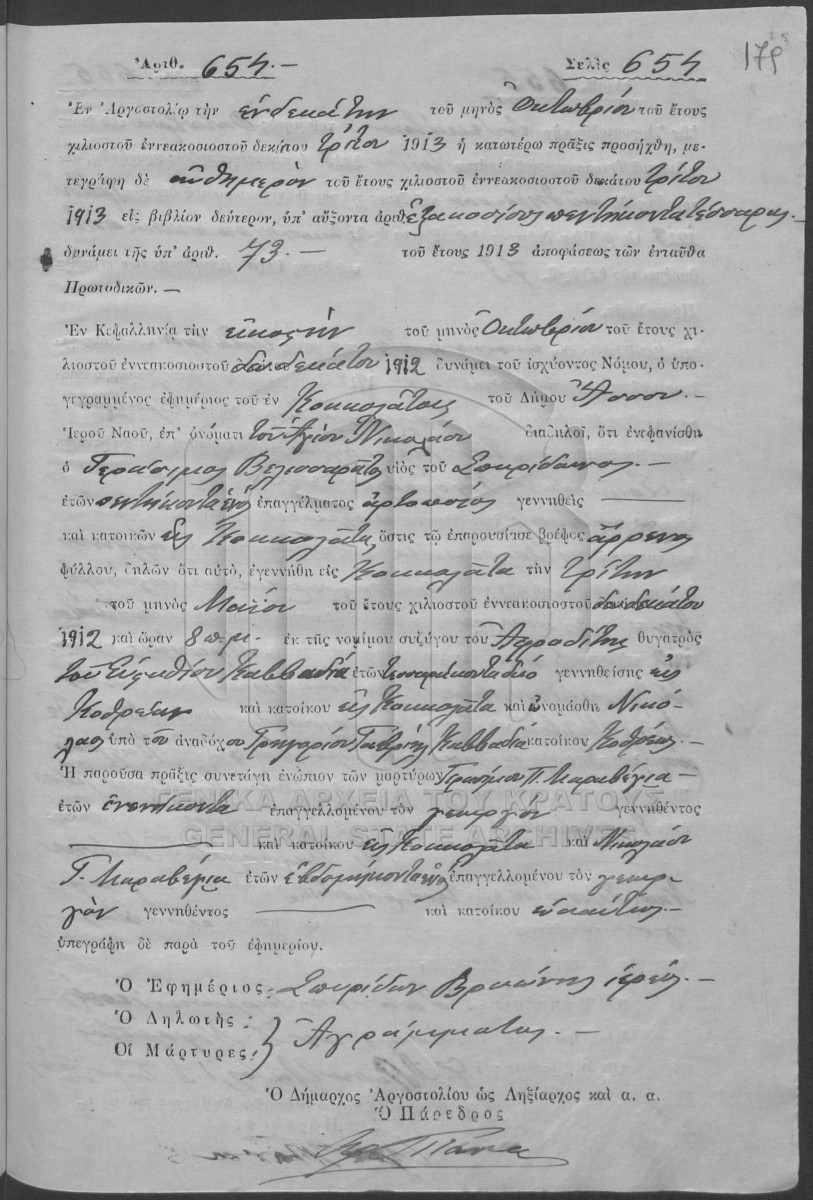 179
Ἀριθ. 654.— Σελὶς 654
Ἐν Ἀργοστολίῳ τὴν ἑνδεκάτην τοῦ μηνὸς Ὀκτωβρίου τοῦ ἔτους
χιλιοστοῦ ἐννεακοσιοστοῦ δεκάτου τρίτου 1913 ἡ κατωτέρω πρᾶξις προσήχθη, με-
τεγράφη δὲ αὐθημερὸν τοῦ ἔτους χιλιοστοῦ ἐννεακοσιοστοῦ δεκάτου τρίτου
1913 εἰς βιβλίον δεύτερον, ὑπ' αὔξοντα ἀριθ. ἑξακοσίους πεντήκοντα τέσσαρας.—
δυνάμει τῆς ὑπ' ἀριθ. 73.— τοῦ ἔτους 1913 ἀποφάσεως τῶν ἐνταῦθα
Πρωτοδικῶν.—
Ἐν Κεφαλληνίᾳ τὴν εἰκοστὴν τοῦ μηνὸς Ὀκτωβρίου τοῦ ἔτους χι-
λιοστοῦ ἐννεακοσιοστοῦ δωδεκάτου 1912 δυνάμει τοῦ ἰσχύοντος Νόμου, ὁ ὑπο-
γεγραμμένος ἐφημέριος τοῦ ἐν Κοκκολάτοις τοῦ Δήμου Ἄσσου.—
Ἱεροῦ Ναοῦ, ἐπ' ὀνόματι τοῦ Ἁγίου Νικολάου διαδηλοῖ, ὅτι ἐνεφανίσθη
ὁ Γεράσιμος Βελισσαρᾶτος υἱὸς τοῦ Σπυρίδωνος.—
ἐτῶν πεντήκοντα ἑνὸς ἐπαγγέλματος ἀρτοποιὸς γεννηθεὶς —
καὶ κατοικῶν εἰς Κοκκολάτα, ὅστις τῷ ἐπαρουσίασε βρέφος ἄρρενος
φύλλου, δηλῶν ὅτι αὐτό, ἐγεννήθη εἰς Κοκκολάτα τὴν τρίτην
τοῦ μηνὸς Μαΐου τοῦ ἔτους χιλιοστοῦ ἐννεακοσιοστοῦ δωδεκάτου
1912 καὶ ὥραν 8 π.μ. ἐκ τῆς νομίμου συζύγου του Ἀφροδίτης θυγατρὸς
τοῦ Εὐσταθίου Καββαδία ἐτῶν τεσσαράκοντα δύο γεννηθείσης εἰς
Κοθρέαν καὶ κατοίκου εἰς Κοκκολάτα καὶ ὠνομάσθη Νικό-
λαος ὑπὸ τοῦ ἀναδόχου Γρηγορίου Γαβριὴλ Καββαδία κατοίκου Κοθρέας.—
Ἡ παροῦσα πρᾶξις συνετάγη ἐνώπιον τῶν μαρτύρων Γερασίμου Π. Μαραβέγια—
ἐτῶν ἐνενήκοντα ἐπαγγελλομένου τὸν γεωργὸν γεννηθέντος
— καὶ κατοίκου εἰς Κοκκολάτα καὶ Νικολάου
Γ. Μαραβέγια ἐτῶν ἑβδομήκοντα ἑνὸς ἐπαγγελλομένου τὸν γεωρ-
γὸν γεννηθέντος — καὶ κατοίκου ὡσαύτως.—
ὑπεγράφη δὲ παρὰ τοῦ ἐφημερίου.
Ὁ Ἐφημέριος: Σπυρίδων ἱερεύς.—
Ὁ Δηλωτὴς:
Οἱ Μάρτυρες: } Ἀγράμματοι.—
Ὁ Δήμαρχος Ἀργοστολίου ὡς Ληξίαρχος καὶ α. α.
Ὁ Πάρεδρος
ΓΕΝΙΚΑ ΑΡΧΕΙΑ ΤΟΥ ΚΡΑΤΟΥΣ
GENERAL STATE ARCHIVES